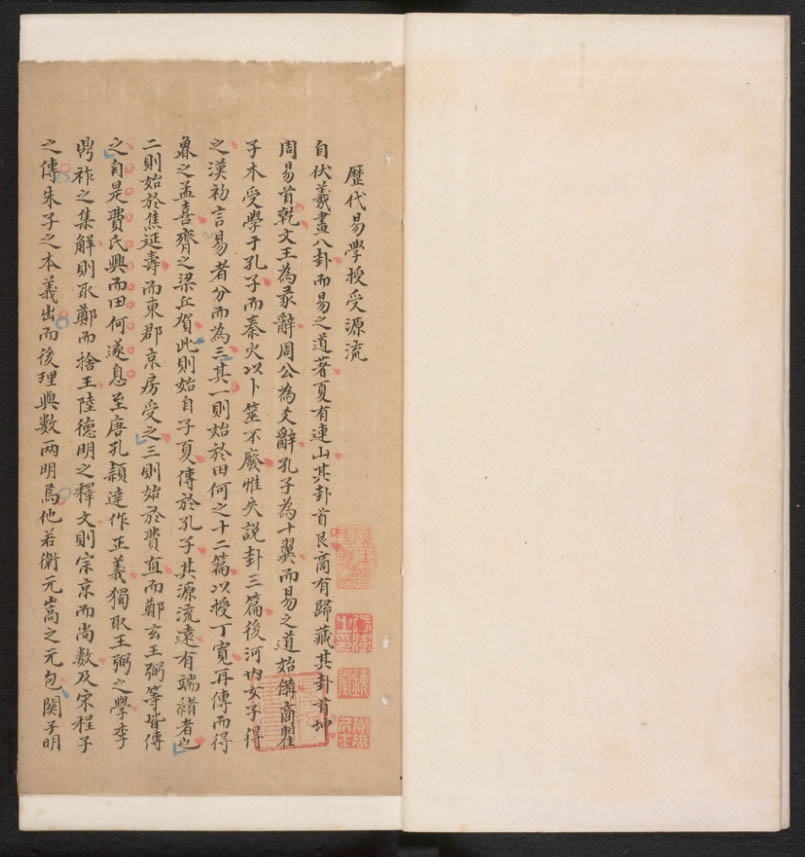 歷代易學授受源流
自伏羲畫八卦而易之道著夏有連山其卦首艮商有歸藏其卦首坤
周易首乾文王為彖辭周公為爻辭孔子為十翼而易之道始備商瞿
子木受學于孔子而秦火以卜筮不廢惟失說卦三篇後河內女子得
之漢初言易者分而為三其一則始於田何之十二篇以授丁寬再傳而得
魯之孟喜齊之梁丘賀此則始自子夏傳於孔子其源流遠有端緒者也
二則始於焦延壽而東郡京房受之三則始於費直而鄭玄王弼等皆傳
之自是費氏興而田何遂息至唐孔穎達作正義獨取王弼之學李
鼎祚之集解則取鄭而捨王陸德明之釋文則宗京而尚數及宋程子
之傳朱子之本義出而後理與數兩明焉他若衛元嵩之元包關子明